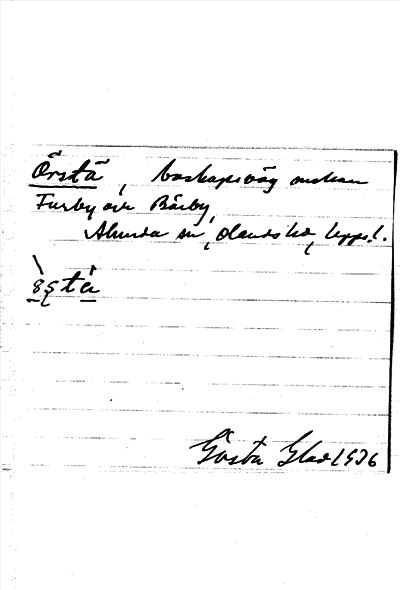 Örstä, boskapsväg mellan
Furby och Bärby,
Almunda sn, Olands hd, Uppl.
Gösta Glad 1936